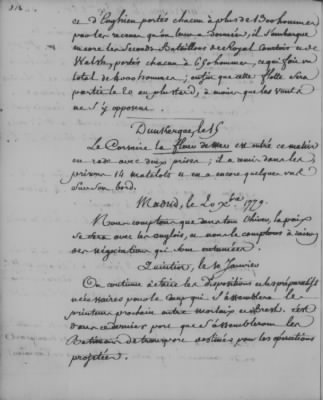 et d'Enghien portés chacun à plus de 1300 hommes
par les recrues qu'on leur a données, il s'embarque
encore les seconds Bataillons de Royal Comtois et de
Walsh, portés chacun à 650 hommes, ce qui fait un
total de hommes; enfin que cette flotte sera
partie le 20 au plus tard, à moins que les vents
ne s'y opposent.
Dunkerque, le 15
Le Corsaire la fleur de Mer est entré ce matin
en rade avec deux prises; il a mis dans les
prisons 14 matelots et en a encore quelques uns
sur son bord.
Madrid, le 20 Xbre 1779.
Nous comptons que dans l'hiver, la paix
se fera avec les anglois, et nous le comptons à cause
des négociations qui sont entamées.
Quintin, le 10 Janvier
On continue à faire les dispositions et les préparatifs
nécessaires pour le Camp qui s'assemblera le
printems prochain entre Morlaix et Brest. C'est
dans ce dernier port que s'assembleront les
Bâtimens de transport destinés pour les opérations
projetées.